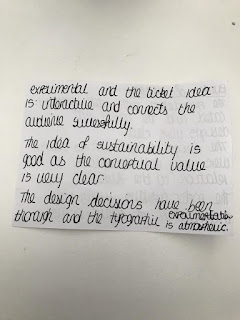 experimental and the ticket idea
is interactive and connects the
audience successfully.
The idea of sustainability is
good as the conceptual value
is very clear
The design decisions have been
thorough and the typographic experimentation
is atmospheric.